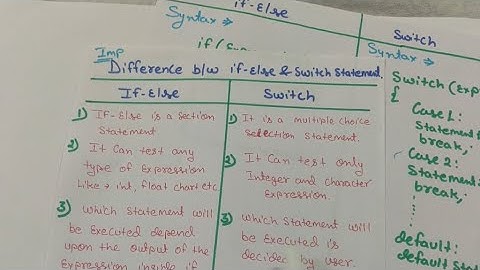 if-else
Syntax →
if (
Switch
Syntax →
Imp
Difference b/w if-else & Switch Statement.
If-Else
Switch
1) If-Else is a Section
Statement
2) It Can test any
type of Expression
Like → int, float chart etc
3) Which Statement will
be Executed depend
upon the output of the
Expression inside if
1) It is a multiple choice
selection Statement.
2) It Can test only
Integer and character
Expression.
3) Which Statement will
be Executed is
decided by user.
Switch (Exp
{
Case 1:
Statement
break;
Case 2:
Statement
break;
:
:
default:
default Sta